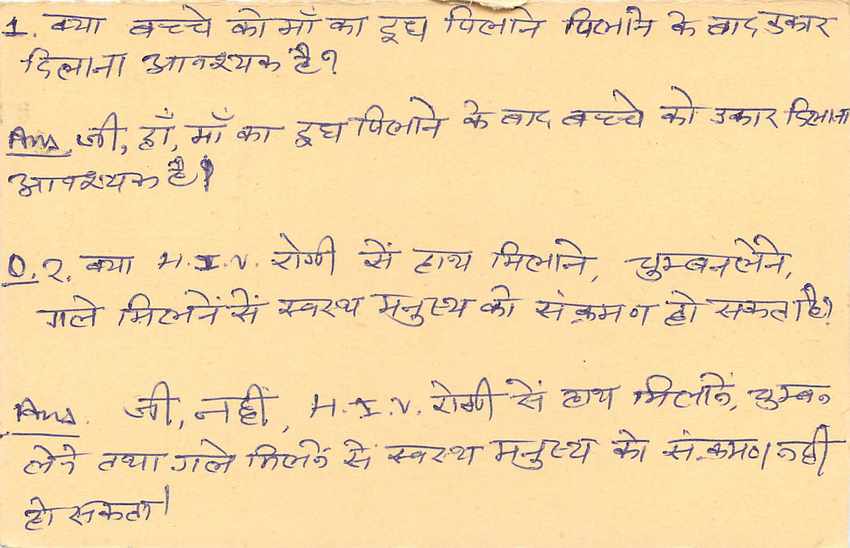 1. क्या बच्चे को माँ का दूध पिलाने पिलाने के बाद डकार
दिलाना आवश्यक है?
Ans. जी, हाँ, माँ का दूध पिलाने के बाद बच्चे को डकार दिलाना
आवश्यक है।
Q. 2. क्या H.I.V. रोगी सें हाथ मिलाने, चुम्बन लेने,
गले मिलनें सें स्वस्थ मनुष्य को संक्रमण हो सकता है?
Ans. जी, नहीं, H.I.V. रोगी सें हाथ मिलानें, चुम्बन
लेने तथा गले मिलनें सें स्वस्थ मनुष्य को संक्रमण नहीं
हो सकता।